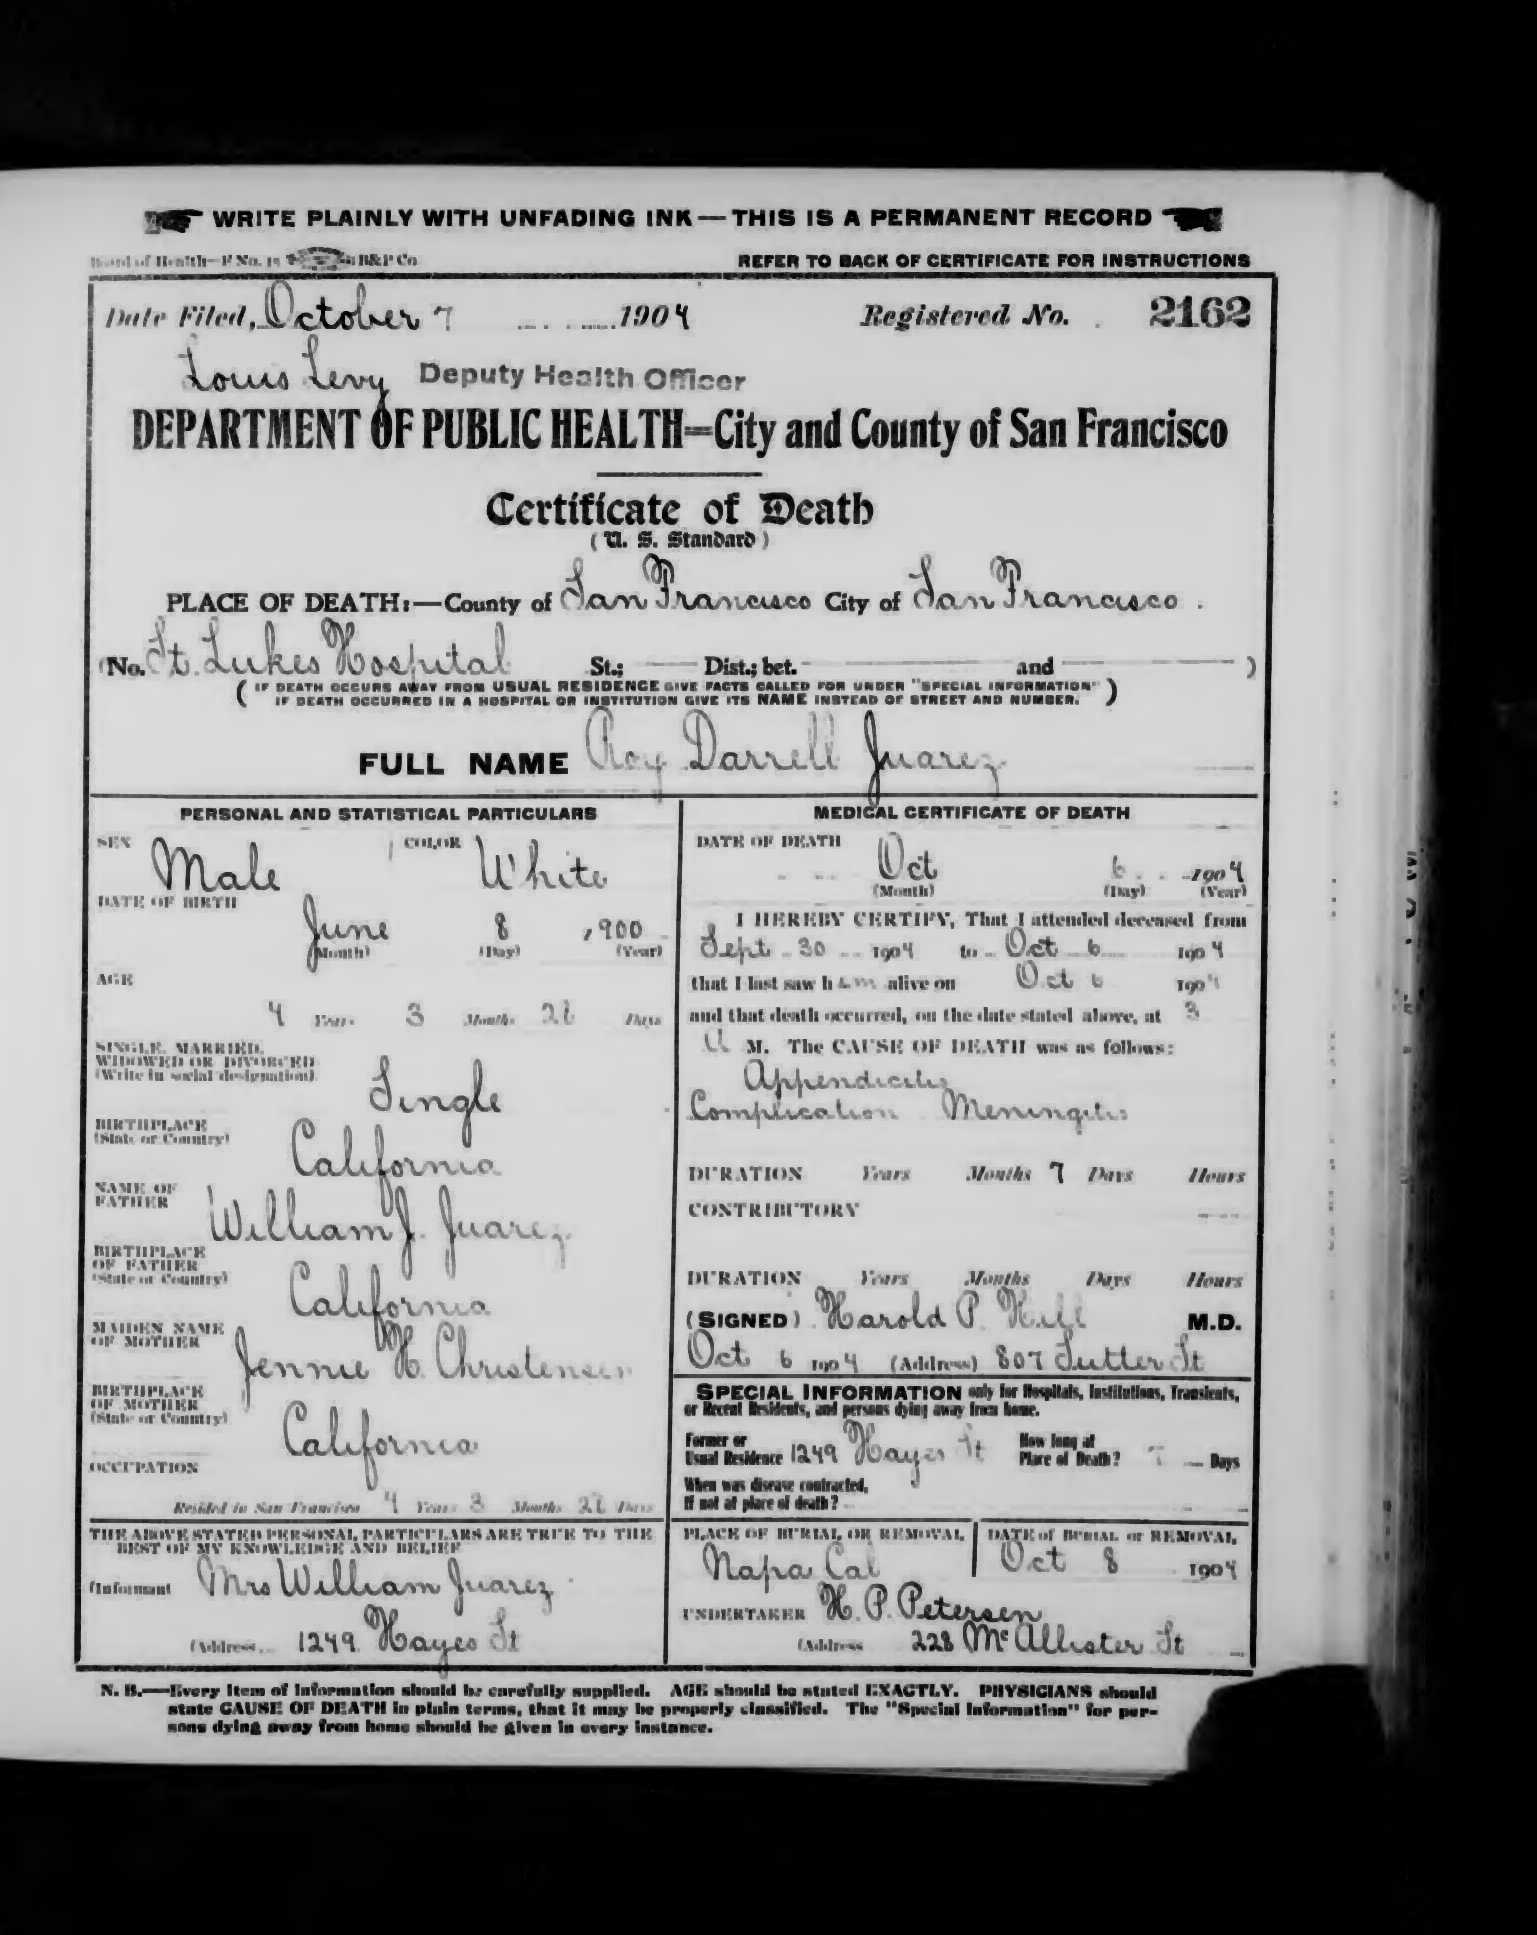 WRITE PLAINLY WITH UNFADING INK — THIS IS A PERMANENT RECORD
Board of Health—F No. 15 B&P Co
REFER TO BACK OF CERTIFICATE FOR INSTRUCTIONS
Date Filed, October 7 1904 Registered No. 2162
Louis Levy Deputy Health Officer
DEPARTMENT OF PUBLIC HEALTH=City and County of San Francisco
Certificate of Death
(U. S. Standard)
PLACE OF DEATH:—County of San Francisco City of San Francisco
(No. St. Lukes Hospital St.; Dist.; bet. and )
( IF DEATH OCCURS AWAY FROM USUAL RESIDENCE GIVE FACTS CALLED FOR UNDER "SPECIAL INFORMATION"
IF DEATH OCCURRED IN A HOSPITAL OR INSTITUTION GIVE ITS NAME INSTEAD OF STREET AND NUMBER. )
FULL NAME Roy Darrell Juarez
PERSONAL AND STATISTICAL PARTICULARS
SEX Male COLOR White
DATE OF BIRTH
June 8 , 900
(Month) (Day) (Year)
AGE
4 Years 3 Months 28 Days
SINGLE, MARRIED,
WIDOWED OR DIVORCED
(Write in social designation)
Single
BIRTHPLACE
(State or Country)
California
NAME OF
FATHER
William J. Juarez
BIRTHPLACE
OF FATHER
(State or Country)
California
MAIDEN NAME
OF MOTHER
Jennie H. Christensen
BIRTHPLACE
OF MOTHER
(State or Country)
California
OCCUPATION
Resided in San Francisco 4 Years 3 Months 28 Days
THE ABOVE STATED PERSONAL PARTICULARS ARE TRUE TO THE
BEST OF MY KNOWLEDGE AND BELIEF
(Informant Mrs William Juarez
(Address 1249 Hayes St
MEDICAL CERTIFICATE OF DEATH
DATE OF DEATH
Oct 6 1904
(Month) (Day) (Year)
I HEREBY CERTIFY, That I attended deceased from
Sept 30 1904 to Oct 6 1904
that I last saw him alive on Oct 6 1904
and that death occurred, on the date stated above, at 3
A M. The CAUSE OF DEATH was as follows:
Appendicitis
Complication Meningitis
DURATION Years Months 7 Days Hours
CONTRIBUTORY
DURATION Years Months Days Hours
(SIGNED) Harold P. Hill M.D.
Oct 6 1904 (Address) 807 Sutter St
SPECIAL INFORMATION only for Hospitals, Institutions, Transients,
or Recent Residents, and persons dying away from home.
Former or
Usual Residence 1249 Hayes St
How long at
Place of Death? 7 Days
When was disease contracted,
If not at place of death?
PLACE OF BURIAL OR REMOVAL
Napa Cal
DATE of BURIAL or REMOVAL
Oct 8 1904
UNDERTAKER H. P. Petersen
(Address 228 McAllister St
N. B.—Every item of information should be carefully supplied. AGE should be stated EXACTLY. PHYSICIANS should
state CAUSE OF DEATH in plain terms, that it may be properly classified. The "Special Information" for per-
sons dying away from home should be given in every instance.